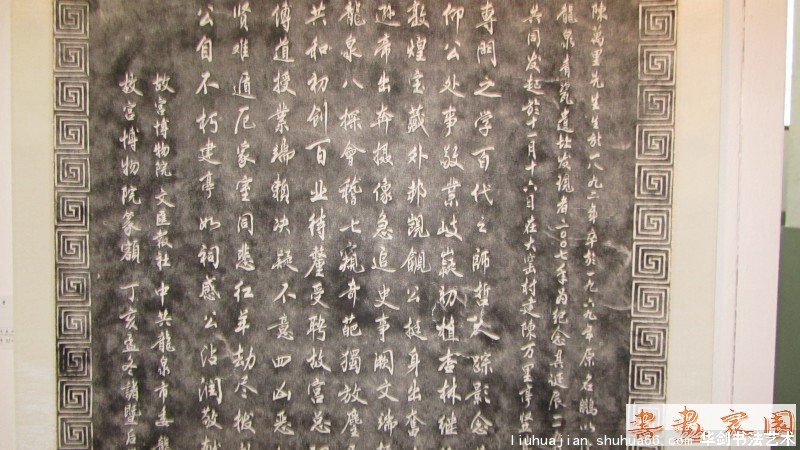 陈万里先生生於一八九二年卒於一九六九年原名鹏以
龙泉青瓷遗址发现者二〇〇七年为纪念其延展一
共同发起於十一月十六日在大窑村建陈万里亭监
专门之学百代之师哲人踪影念
仰公处事敬业岐嶷初植杏林继
敦煌宝藏外邦觊觎公挺身出奮
逊帝出奔摄像急追史事阙文端
龙泉八探会稽七窥奇葩独放麈
共和初创百业待釐受聘故宫总
传道授业端赖决疑不意四凶恶
贤难遁厄家室同悲红羊劫尽拨
公自不朽建亭如祠感公沾润敬
故宫博物院 文匯报社 中共龍泉市委龍
故宫博物院篆额 丁亥孟冬諸暨后学
書畫家園
liuhuajian.shuhua66.com 华剑书法艺术